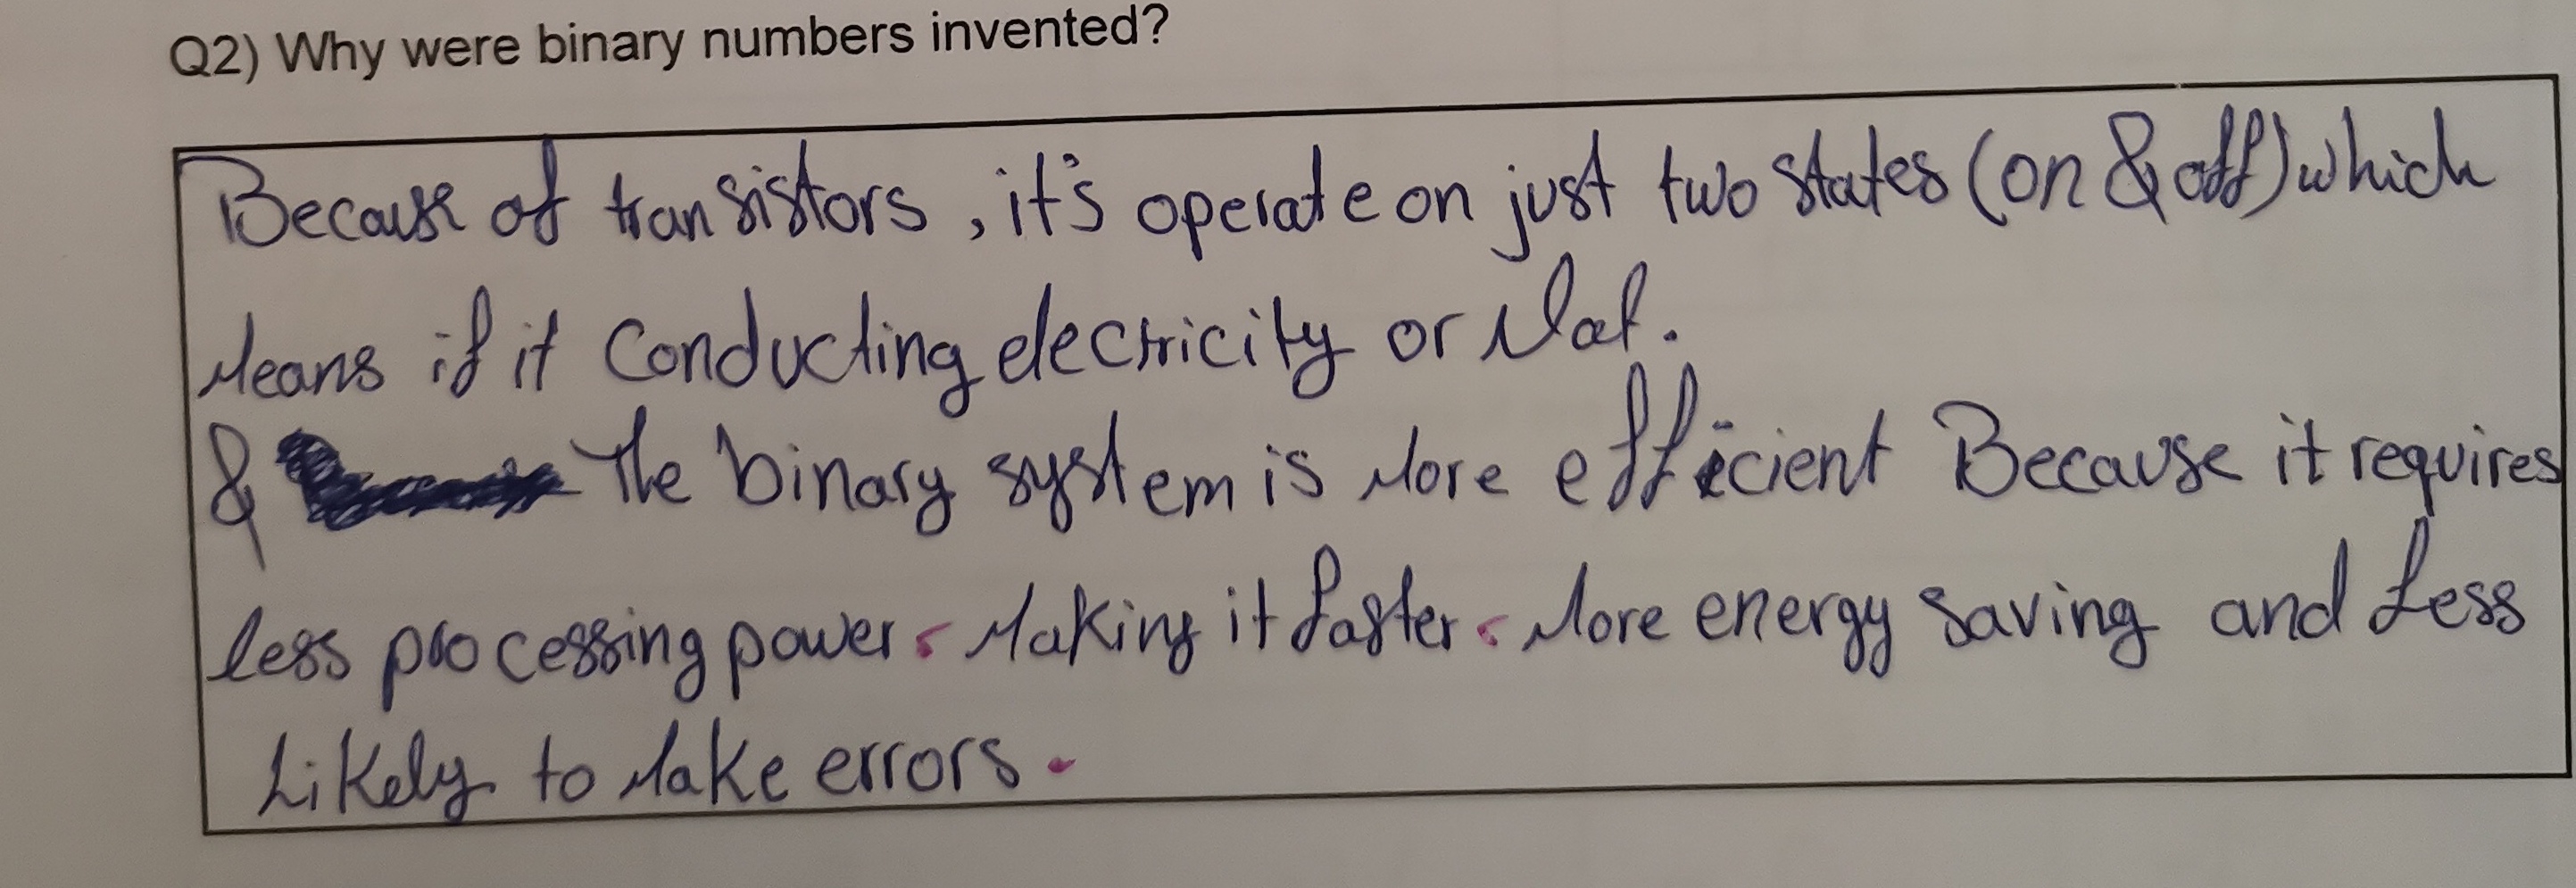 Q2) Why were binary numbers invented?
Because of transistors, it's operate on just two states (on & off) which
Means if it conducting electricity or Not.
& The binary system is More efficient Because it requires
less processing power, Making it faster, More energy saving and Less
Likely to Make errors.